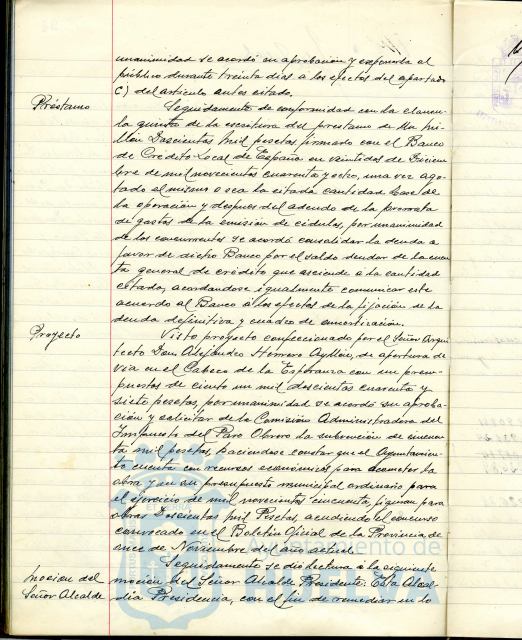 unanimidad se acordó su aprobación y exponerla al
público durante treinta días a los efectos del apartado
C) del artículo antes citado.
Préstamo
Seguidamente de conformidad con la clausu-
la quinta de la escritura del prestamo de Un mi-
llón Doscientas Mil pesetas firmado con el Banco
de Crédito Local de España en veintidos de Diciem-
bre de mil novecientos cuarenta y ocho, una vez ago-
tado el mismo o sea la citada cantidad base de
la operación y despues del adeudo de la prorrata
de gastos de la emisión de cédulas, por unanimidad
de los concurrentes se acordó consolidar la deuda a
favor de dicho Banco por el saldo deudor de la cuen-
ta general de crédito que asciende a la cantidad
citada, acordandose igualmente comunicar este
acuerdo al Banco a los efectos de la fijación de la
deuda definitiva y cuadro de amortización.
Proyecto
Visto proyecto confeccionado por el Señor Arqui-
tecto Don Alejandro Herrero Ayllón, de apertura de
via en el Cabezo de la Esperanza con un presu-
puestos de ciento un mil doscientas cuarenta y
siete pesetas, por unanimidad se acordó su aproba-
ción y solicitar de la Comisión Administradora del
Impuesto del Paro Obrero la subvención de cincuen-
ta mil pesetas, haciendose constar que el Ayuntamien-
to cuenta con recursos económicos para acometer la
obra y en su presupuesto municipal ordinario para
el ejercicio de mil novecientos cincuenta, figuran para
obras Doscientas mil Pesetas, acudiendo al concurso
convocado en el Boletín Oficial de la Provincia de
once de Noviembre del año actual.
Mocion del
Señor Alcalde
Seguidamente se dió lectura a la siguiente
moción del Señor Alcalde Presidente: Esta Alcal-
dia Presidencia, con el fin de remediar en lo
Ayuntamiento de